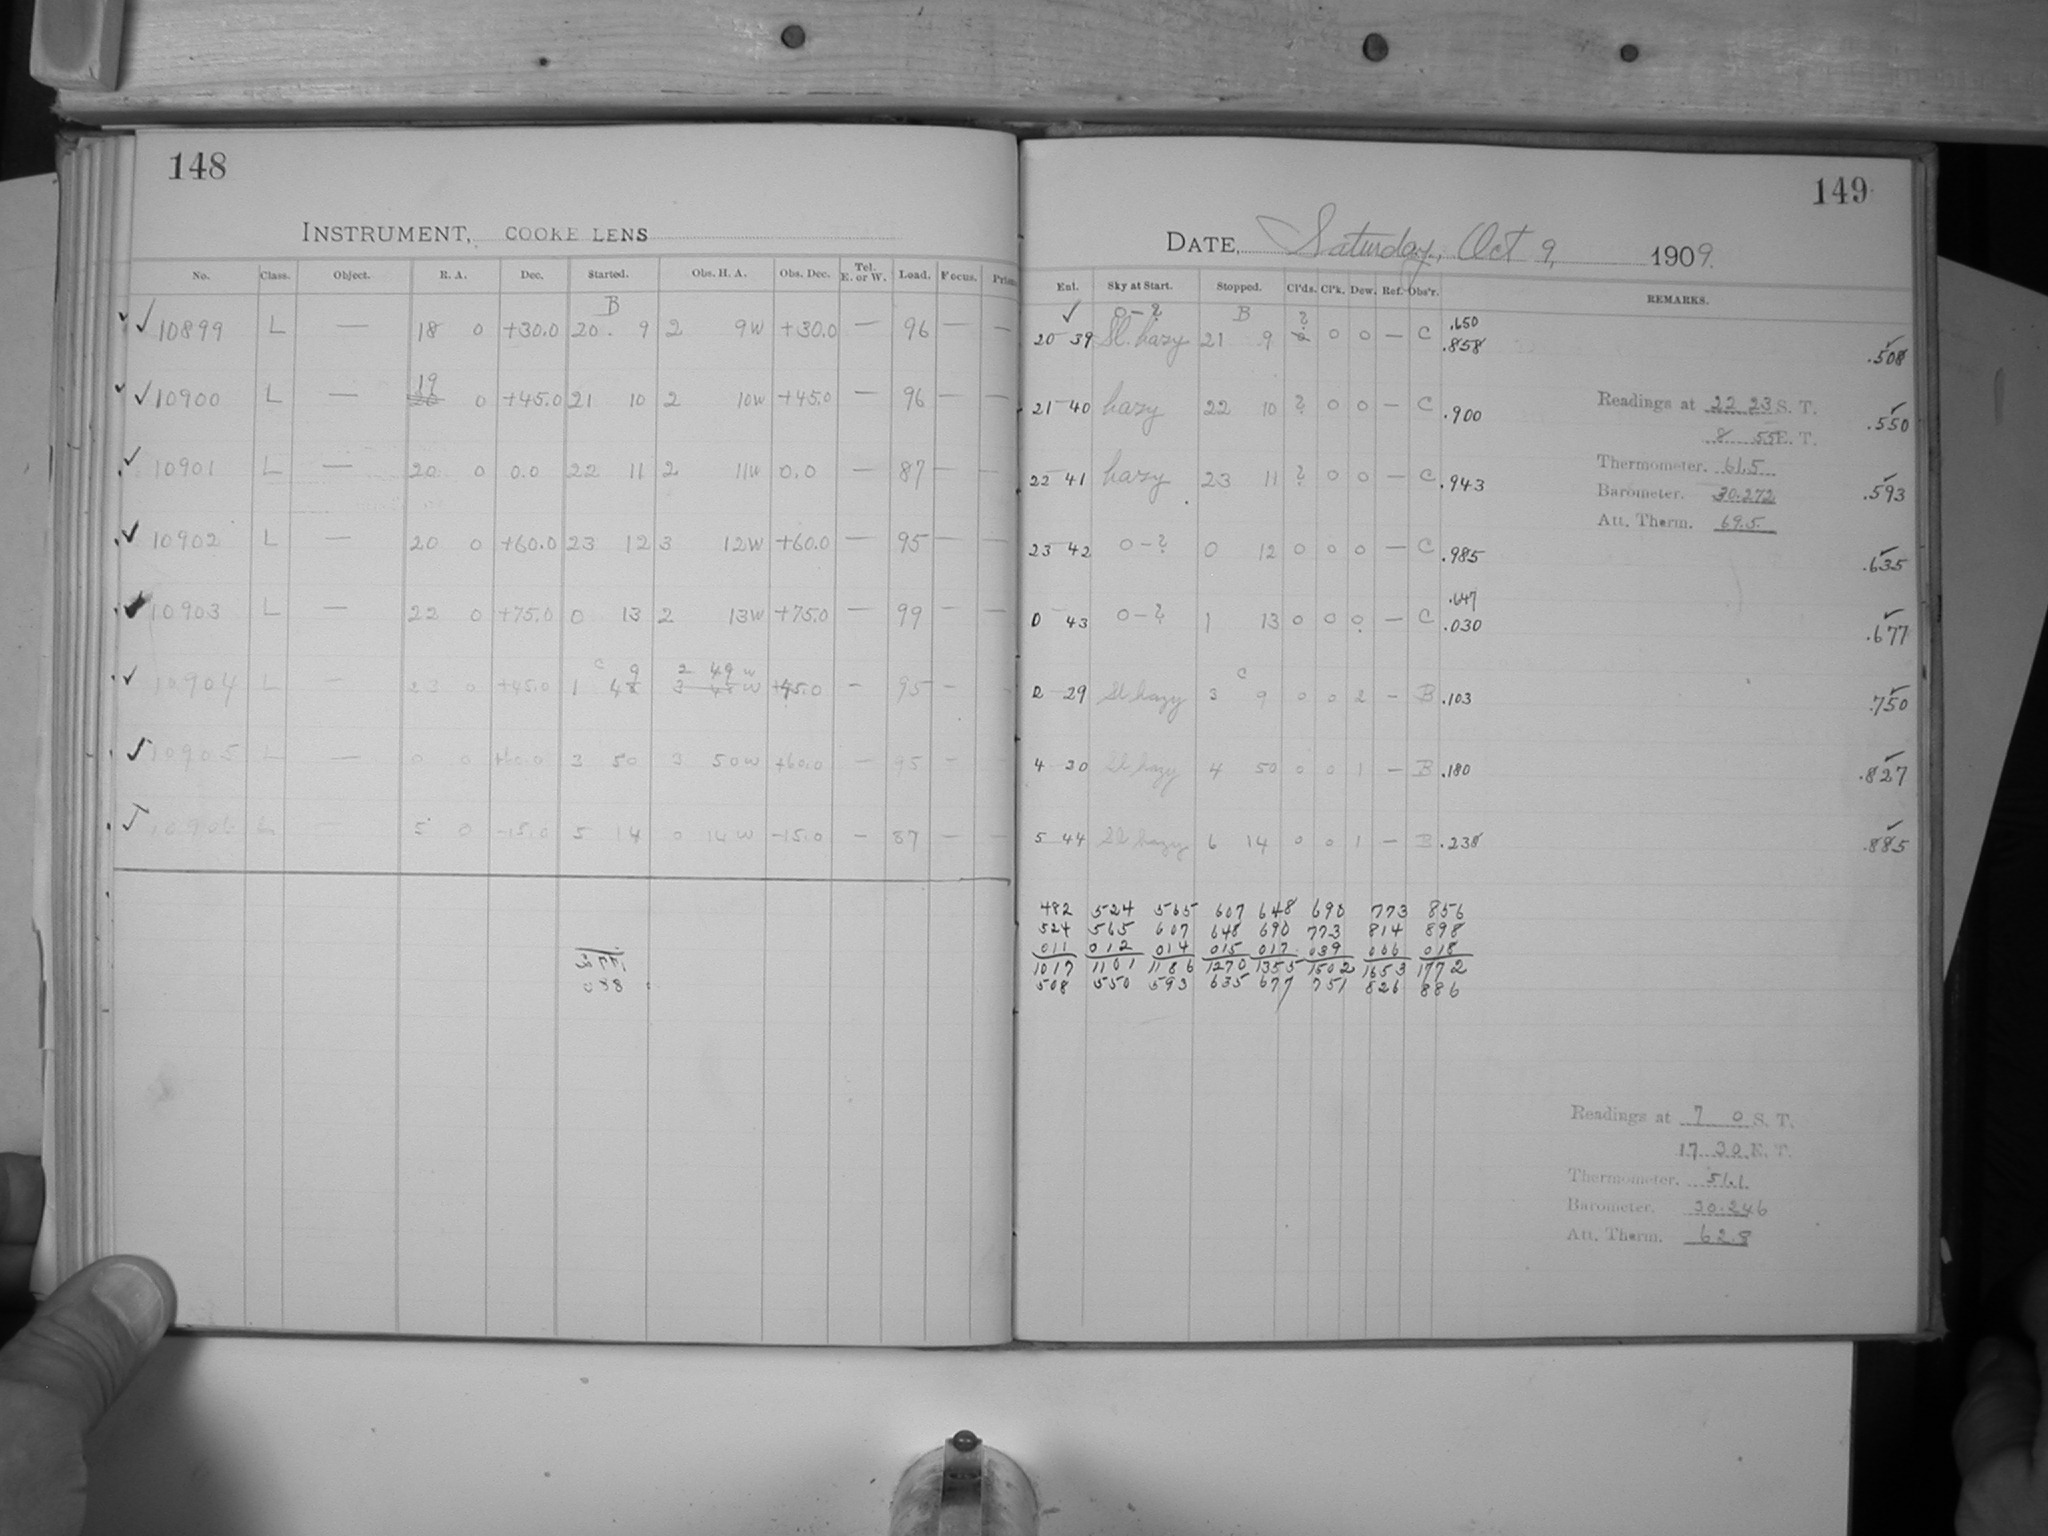 148
INSTRUMENT, COOKE LENS
No. Class. Object. R. A. Dec. Started. Obs. H. A. Obs. Dec. Tel. E. or W. Load. Focus.
B
✓ 10899 L — 18 0 +30.0 20 9 2 9W +30.0 — 96 — —
19
✓ 10900 L — 20 0 +45.0 21 10 2 10W +45.0 — 96 — —
✓ 10901 L — 20 0 0.0 22 11 2 11W 0.0 — 87 — —
✓ 10902 L — 20 0 +60.0 23 12 3 12W +60.0 — 95 — —
✓ 10903 L — 22 0 +75.0 0 13 2 13W +75.0 — 99 — —
C 9 2 49 W
✓ 10904 L — 23 0 +45.0 1 48 3 48 W +45.0 — 95 — —
✓ 10905 L — 0 0 +60.0 3 50 3 50W +60.0 — 95 — —
✓ 10906 L — 5 0 -15.0 5 14 0 14W -15.0 — 87 — —
149
DATE, Saturday, Oct 9, 1909.
Ent. Sky at Start. Stopped. Cl'ds. Cl'k. Dew. Ref. Obs'r. REMARKS.
✓ 0-? B ? .650
20 39 Sl. hazy 21 9 0 0 — C .858 .508
21 40 hazy 22 10 ? 0 0 — C .900 .550
22 41 hazy 23 11 ? 0 0 — C .943 .593
23 42 0-? 0 12 0 0 0 — C .985 .635
.647
0 43 0-? 1 13 0 0 0 — C .030 .677
C
2 29 Sl hazy 3 9 0 0 2 — B .103 .750
4 30 Sl hazy 4 50 0 0 1 — B .180 .827
5 44 Sl hazy 6 14 0 0 1 — B .238 .885
Readings at 22 23 S. T.
8 55 E. T.
Thermometer. 61.5
Barometer. 30.272
Att. Therm. 69.5
482 524 565 607 648 690 773 856
524 565 607 648 690 773 814 898
011 012 014 015 017 039 066 018
1017 1101 1186 1270 1355 1502 1653 1772
508 550 593 635 677 751 826 886
Readings at 7 0 S. T.
17 30 E. T.
Thermometer. 51.1
Barometer. 30.246
Att. Therm. 62.8